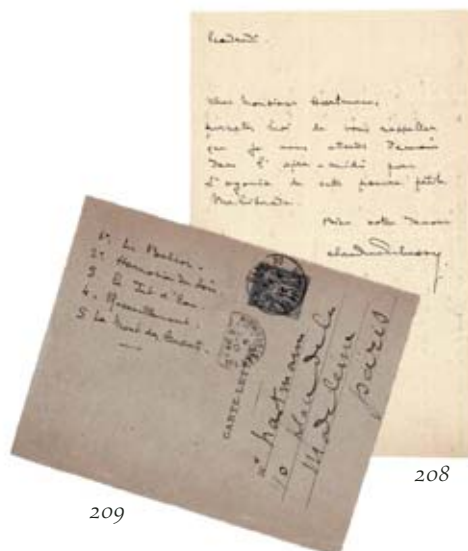 Vendredi.
Cher Monsieur Hartmann,
permettez moi de vous rappeler
que je vous attends Demain
Dans l'après-midi pour
l'agonie de cette pauvre petite
Mélisande.
Bien votre Dévoué
Claude Debussy
208
1° Le Balcon.
2° Harmonie du Soir
3 Le Jet d'Eau.
4. Recueillement.
5 La Mort des Amants.
CARTE-LETTRE
Hartmann
10 place de la
Madeleine
Paris
209